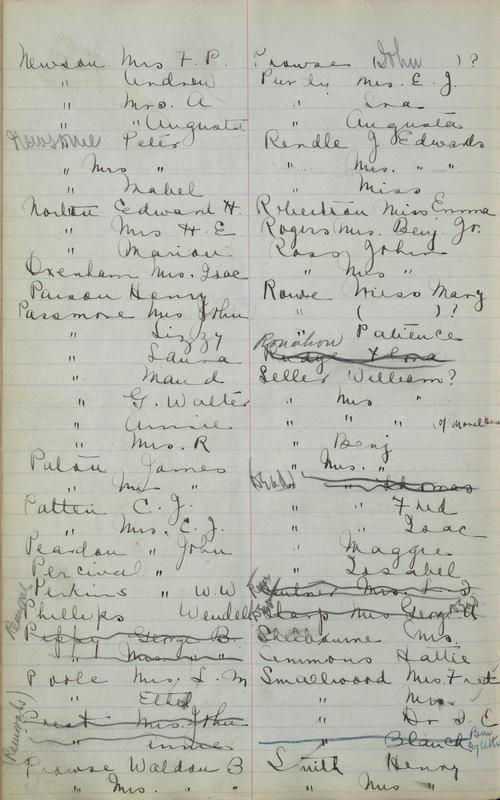 Newson Mrs F. P.
" Andrew
" Mrs. A
" " Augusta
Newsome Peter
" Mrs "
" Mabel
Norton Edward H.
" Mrs H. E
" Marion
Oxenham Mrs. Isac
Parson Henry
Passmore Mrs John
" Lizzy
" Laura
" Maud
" G. Walter
" Annie
" Mrs. R
Paton James
" Mrs "
Patten C. J.
" Mrs. C. J.
Peardon " John
Percival "
Perkins " W. W
Phillips Wendell
Peppy George B.
" Mrs " "
Poole Mrs. L. M
" Ethel
Preet Mrs. John
" Annie
Prowse Waldon B
" Mrs. " "
Prowse (John ) ?
Purdy Mrs. E. J.
" Ina
" Augusta
Rendle J Edwards
" Mrs. " "
" Miss
Robertson Miss Emma
Rogers Mrs. Benj Jr.
Ross John
" Mrs "
Rowe Miss Mary
" ( ) ?
" Patience
Ronahow
Rudge Flora
Seller William?
" Mrs "
" " "
" Benj
" Mrs. "
Dead " " Thomas
" " Fred
" " Isac
" Maggie
" Issabel
Mrs. L. J.
Sharp Mrs George H
Shelbourne Mrs.
Simmons Hattie
Smallwood Mrs. Fred
" Mrs.
" Dr I. E
" Blanch
Smith Henry
" Mrs "
Removed